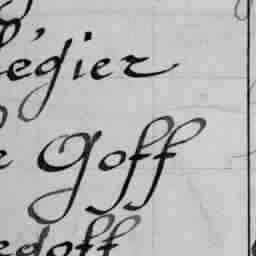 égier
Goff
edoff